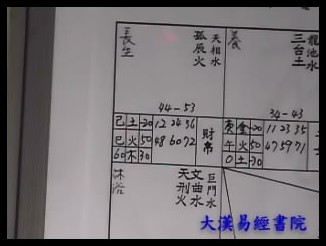 長生
天相水
孤辰火
養
龍池水
三台土
44-53
34-43
巳 土 -20 12 24 36
巳 火 50 48 60 72
60 木 30
財帛
庚 金 -20 11 23 35
午 火 50 47 59 71
0 土 -30
沐浴
巨門水
文曲水
天刑火
大漢易經書院